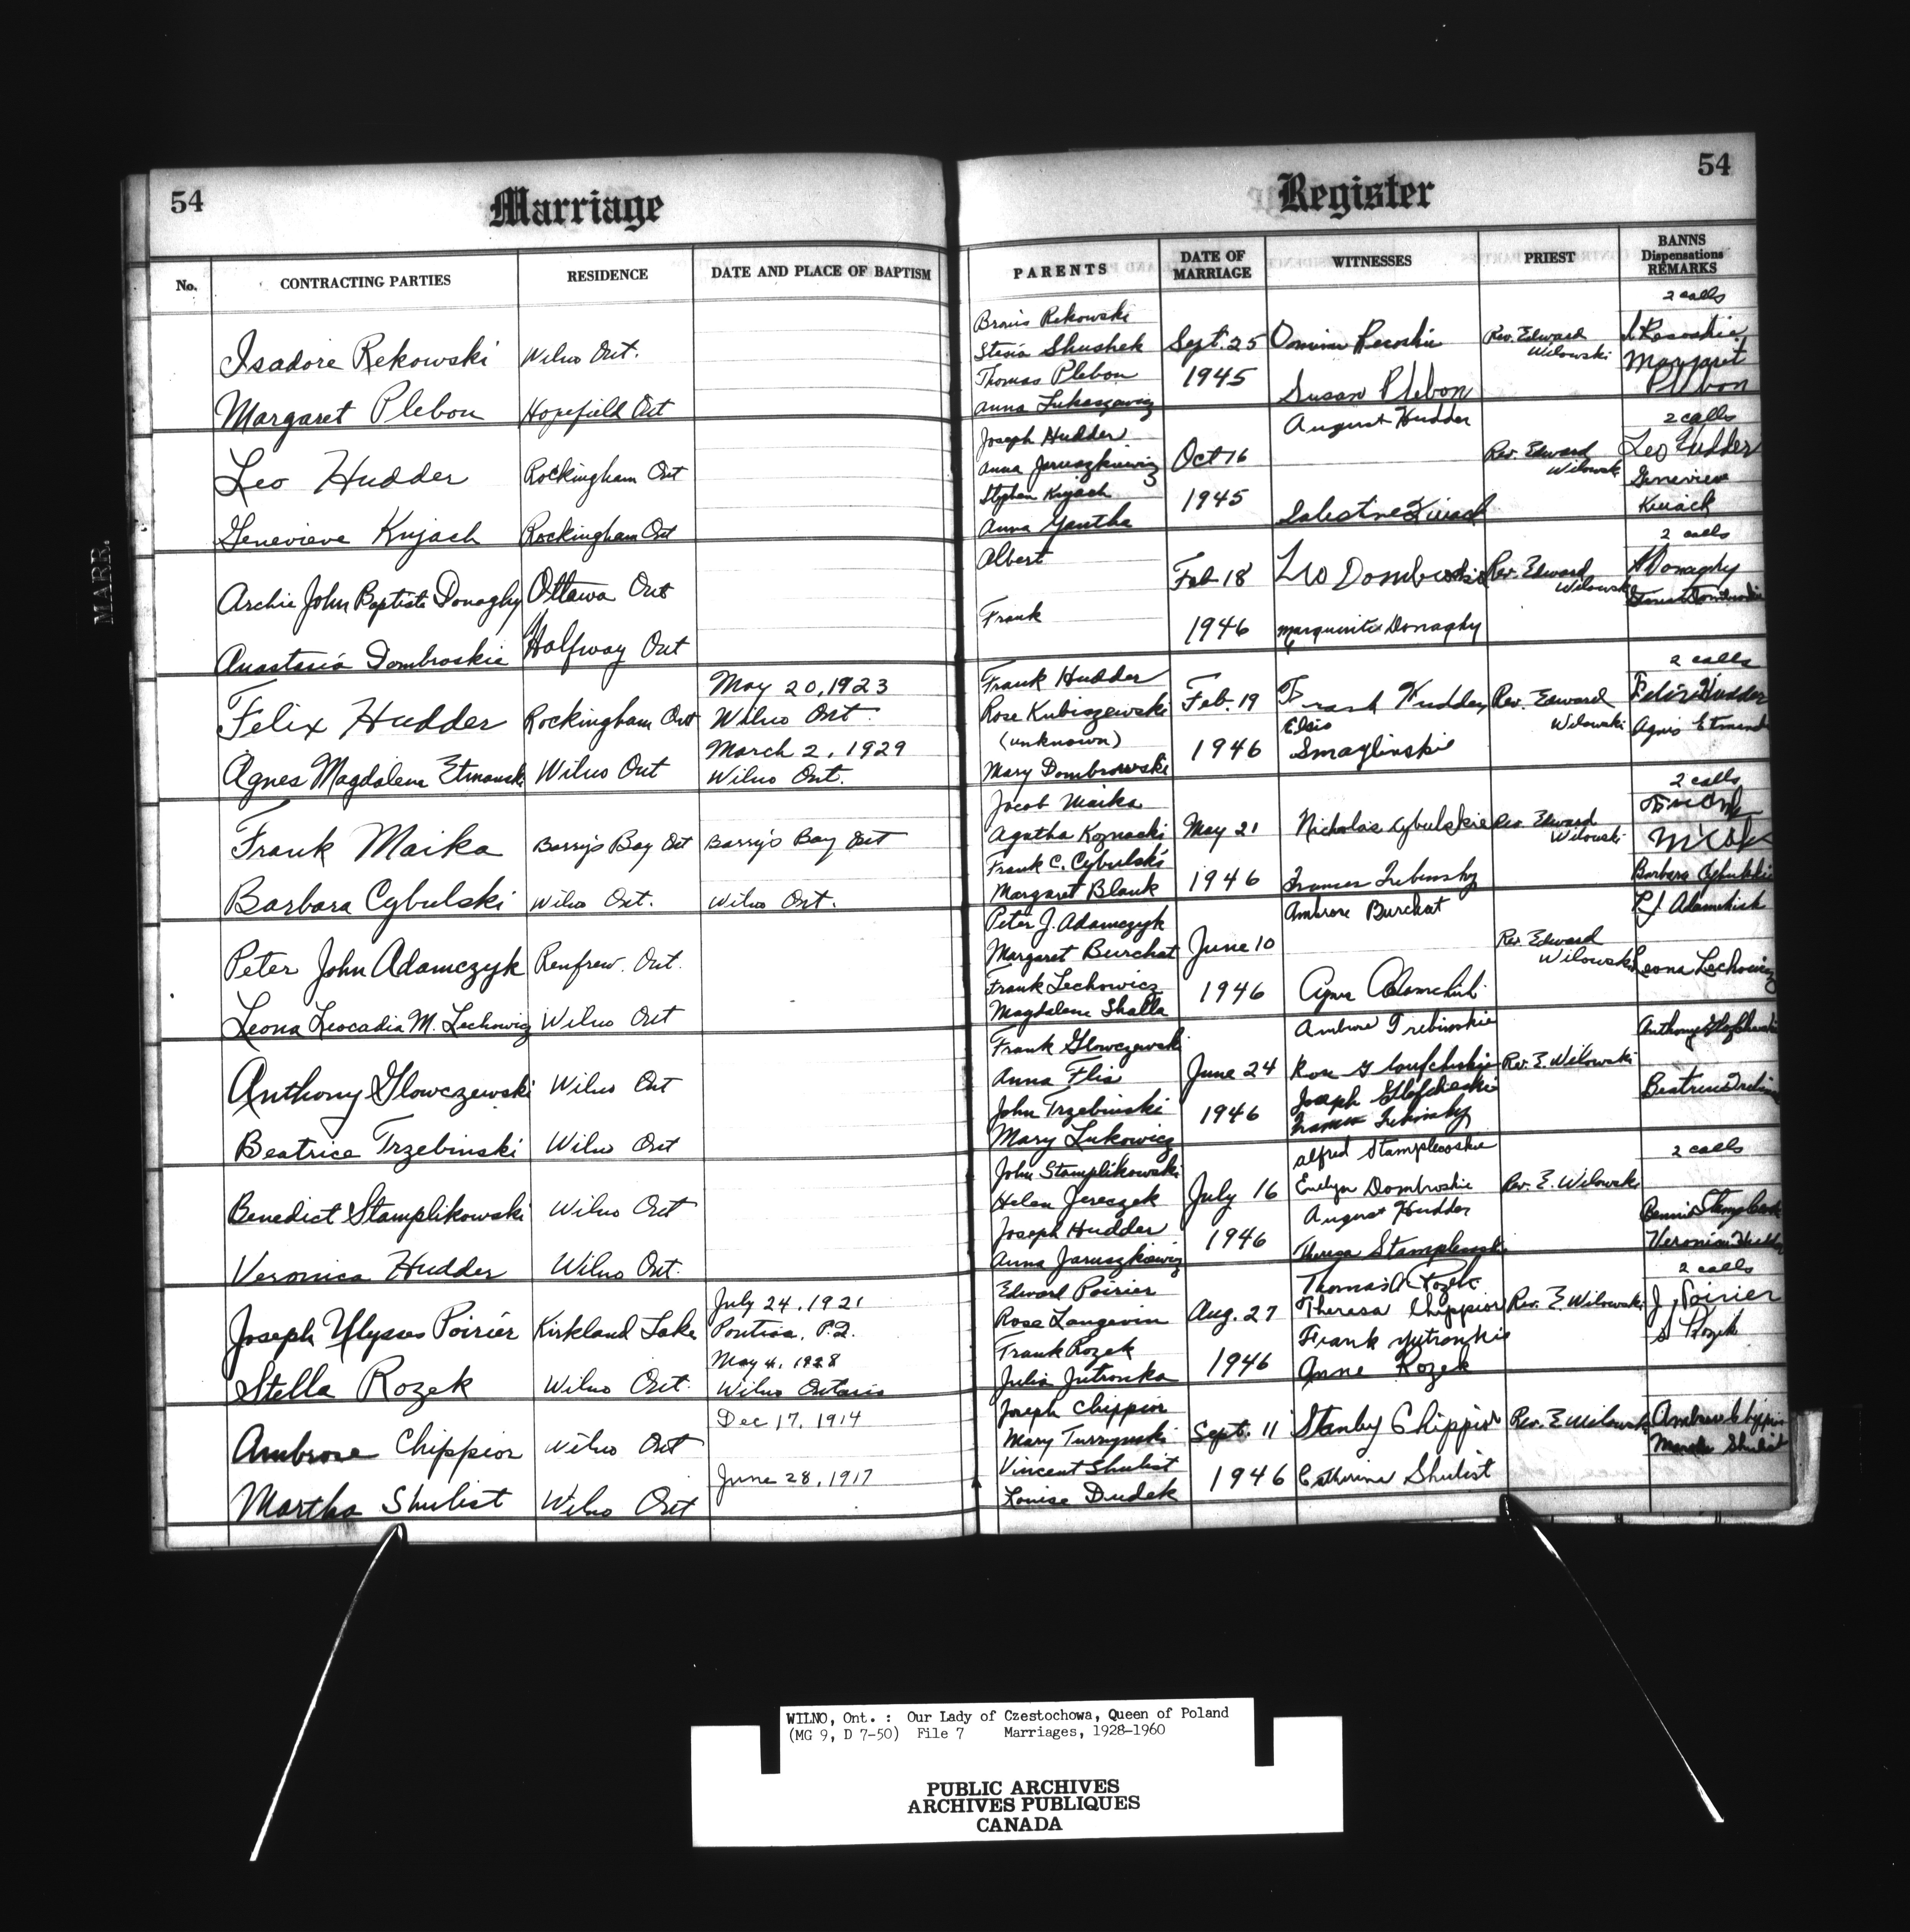 54
Marriage
Register
54
No.
CONTRACTING PARTIES
RESIDENCE
DATE AND PLACE OF BAPTISM
PARENTS
DATE OF
MARRIAGE
WITNESSES
PRIEST
BANNS
Dispensations
REMARKS
MARR.
Isadore Rekowski
Wilno Ont.
Margaret Plebon
Hopefield Ont
Bronis Rekowski
Stasia Shushek
Thomas Plebon
Anna Lukaszewicz
Sept. 25
1945
Susan Plebon
Rev. Edward
Wilowski
2 calls
Margaret
Plebon
Leo Hudder
Rockingham Ont
Genevieve Knjach
Rockingham Ont
Joseph Hudder
Anna Jaruszkiewicz
Stephen Knjach
Anna Yantha
Oct 16
1945
August Hudder
Rev. Edward
Wilowski
2 calls
Leo Hudder
Genevieve
Archie John Baptiste Donaghy
Ottawa Ont
Anastasia Dombroskie
Halfway Ont
Albert
Frank
Feb 18
1946
Leo Dombroskie
Marguerite Donaghy
Rev. Edward
Wilowski
2 calls
A Donaghy
Felix Hudder
Rockingham Ont
May 20, 1923
Wilno Ont.
Agnes Magdalena Etmanski
Wilno Ont
March 2, 1929
Wilno Ont.
Frank Hudder
Rose Kubiszewski
(unknown)
Mary Dombrowski
Feb. 19
1946
Frank Hudder
Elsie
Smaglinskie
Rev. Edward
Wilowski
2 calls
Felix Hudder
Agnes Etmanski
Frank Maika
Barry's Bay Ont
Barry's Bay Ont
Barbara Cybulski
Wilno Ont.
Wilno Ont.
Jacob Maika
Agatha Koznacki
Frank C. Cybulski
Margaret Blank
May 21
1946
Nicholas Cybulskie
Frances Trebinsky
Rev. Edward
Wilowski
2 calls
Barbara Cybulskie
Peter John Adamczyk
Renfrew. Ont.
Leona Leocadia M. Lechowicz
Wilno Ont
Peter J. Adamczyk
Margaret Burchat
Frank Lechowicz
Magdalene Shalla
June 10
1946
Ambrose Burchat
Rev Edward
Wilowski
P J Adamchick
Leona Lechowicz
Anthony Glowczewski
Wilno Ont
Beatrice Trzebinski
Wilno Ont
Frank Glowczewski
Anna Flis
John Trzebinski
Mary Lukowicz
June 24
1946
Ambrose Trebinskie
Rev. E. Wilowski
Benedict Stamplikowski
Wilno Ont
Veronica Hudder
Wilno Ont.
John Stamplikowski
Helen Jereczek
Joseph Hudder
Anna Jaruszkiewicz
July 16
1946
Alfred Stampleoskie
Evelyn Dombroskie
August Hudder
Theresa Stampleoskie
Rev. E. Wilowski
2 calls
Veronica Hudder
Joseph Ulysses Poirier
Kirkland Lake
July 24, 1921
Pontiac, P.Q.
Stella Rozek
Wilno Ont.
May 4, 1928
Wilno Ontario
Edward Poirier
Rose Langevin
Frank Rozek
Julia Jutronka
Aug. 27
1946
Thomas A Rozek
Theresa Chippior
Frank Yutronkie
Anne Rozek
Rev. E. Wilowski
2 calls
J. Poirier
S Rozek
Ambrose Chippior
Wilno Ont
Dec 17, 1914
Martha Shulist
Wilno Ont
June 28, 1917
Joseph Chippior
Mary Turzynski
Vincent Shulist
Louise Dudek
Sept. 11
1946
Stanley Chippior
Catherine Shulist
Rev. E. Wilowski
Ambrose Chippior
Martha Shulist
WILNO, Ont. : Our Lady of Czestochowa, Queen of Poland
(MG 9, D 7-50) File 7 Marriages, 1928-1960
PUBLIC ARCHIVES
ARCHIVES PUBLIQUES
CANADA